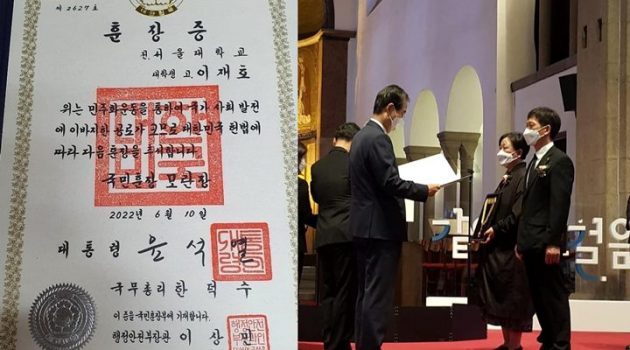 제 2627호
훈장증
전.서울대학교
대학생 고.이재호
위는 민주화운동을 통하여 국가 사회 발전
에 이바지한 공로가 크므로 대한민국 헌법에
따라 다음 훈장을 추서합니다.
국민훈장 모란장
2022년 6월 10일
대통령 윤석열
국무총리 한덕수
이 증을 국민훈장부에 기재합니다.
행정안전부장관 이상민